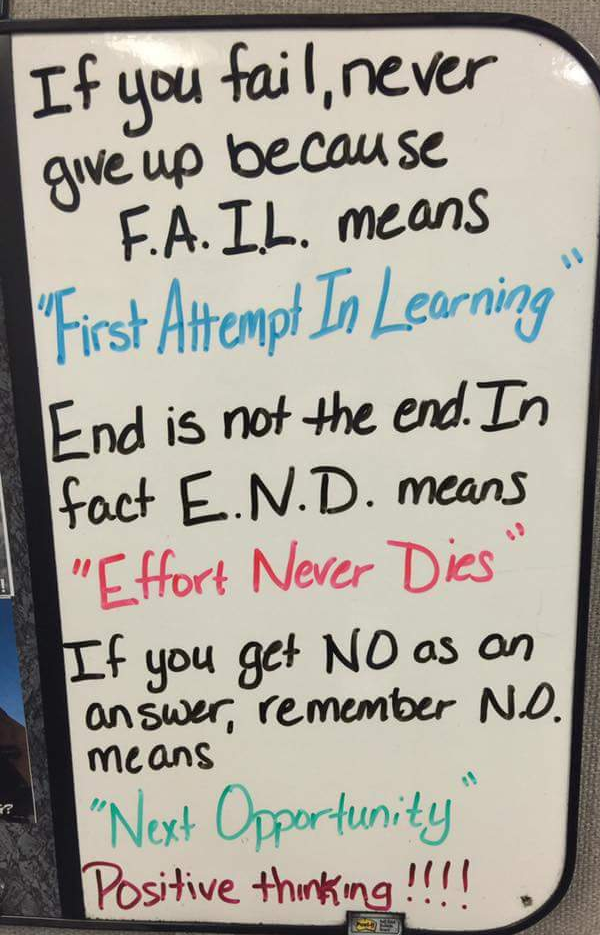 If you fail, never
give up because
F.A.I.L. means
"First Attempt In Learning"
End is not the end. In
fact E.N.D. means
"Effort Never Dies"
If you get NO as an
answer, remember N.O.
means
"Next Opportunity"
Positive thinking !!!!
Post-it